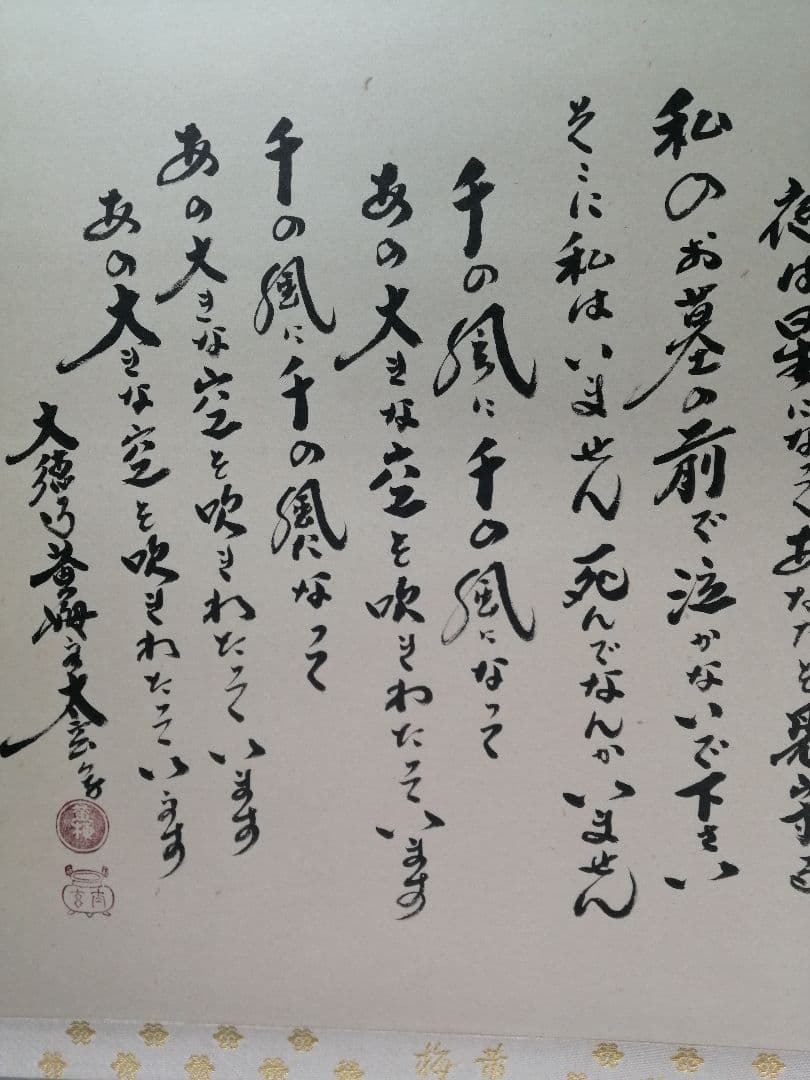 夜は星になってあなたを見守る
私のお墓の前で泣かないで下さい
そこに私はいません 死んでなんかいません
千の風に千の風になって
あの大きな空を吹きわたっています
千の風に千の風になって
あの大きな空を吹きわたっています
あの大きな空を吹きわたっています
大徳寺黄梅主太玄書
黄梅
太玄
黄梅